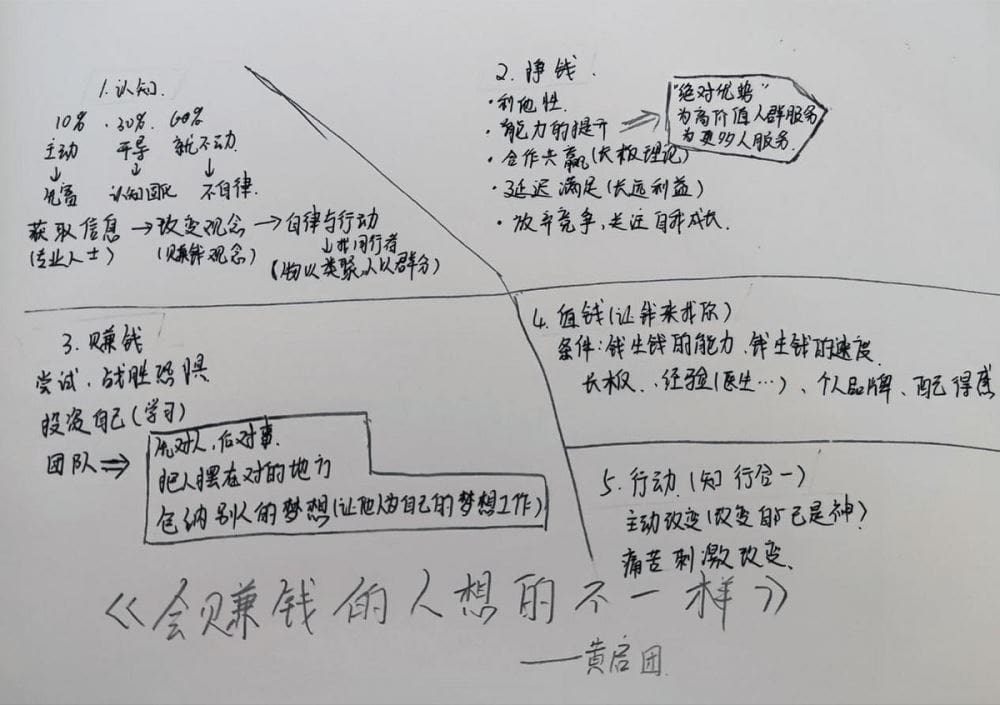 1.认知.
10% . 30%. 60%
主动 开导 就不动.
↓ ↓ ↓
认知固化 不自律.
获取信息→改变观念→自律与行动
(专业人士) (赚钱观念) ↓找同行者
(物以类聚,人以群分)
2. 挣钱.
·利他性.
·能力的提升 ⇒ "绝对优势"
为高价值人群服务
为更多人服务.
·合作共赢(长板理论)
·延迟满足(长远利益)
·放弃竞争,关注自我成长.
3. 赚钱
尝试、战胜恐惧
投资自己(学习)
团队⇒
先对人,后对事.
把人摆在对的地方
包纳别人的梦想(让他人为自己的梦想工作)
4. 值钱(让钱来找你)
条件:钱生钱的能力、钱生钱的速度
长板、经验(医生…)、个人品牌、配得感
5. 行动(知行合一)
主动改变(改变自己是神)
痛苦刺激改变.
《会赚钱的人想的不一样》
——黄启团